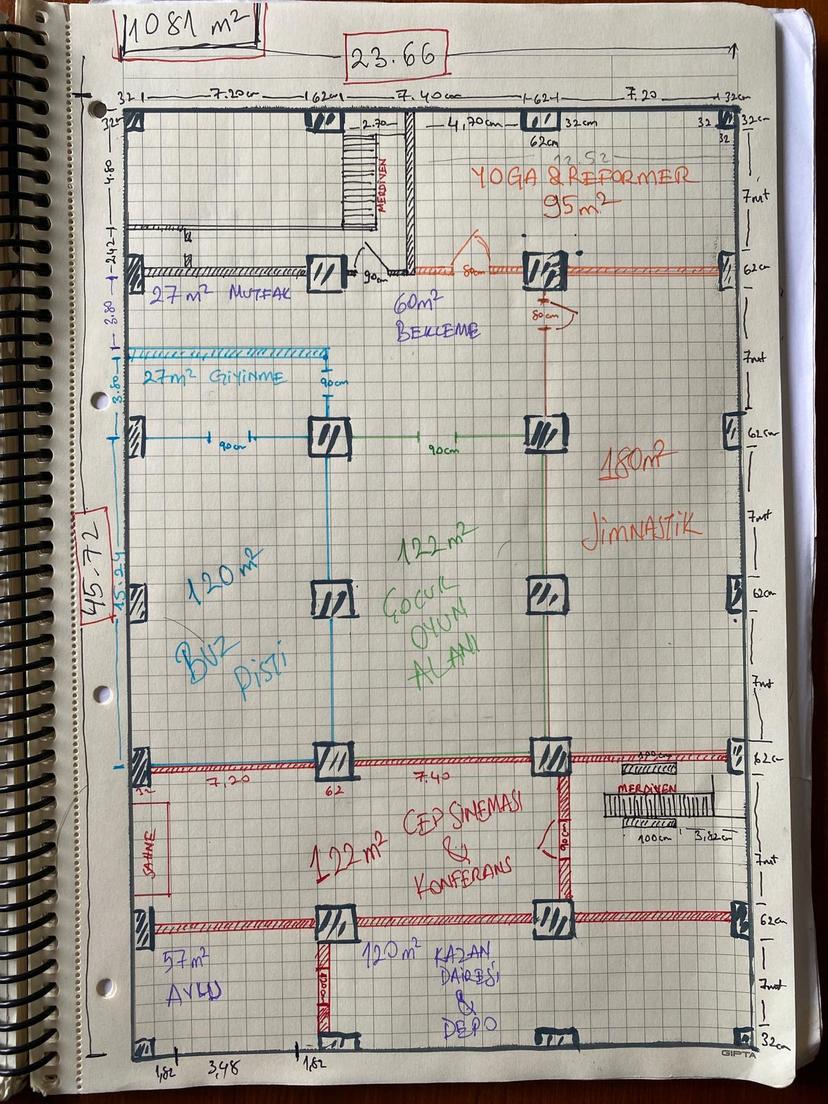 1081 m²
23.66
32 7.20cm 62cm 7.40cm 62 7.20 32cm
32 2.70 4,70cm 62cm 32cm 32 32 32cm
12.52
MERDİVEN
YOGA & REFORMER
95m²
4.80
7mt
2.42
90cm
80cm
62cm
27m² MUTFAK
60m²
BEKLEME
80cm
3.80
7mt
27m² GİYİNME
90cm
3.80
90cm
90cm
62cm
180m²
JİMNASTİK
7mt
45.72
15.24
120m²
BUZ
PİSTİ
122m²
ÇOCUK
OYUN
ALANI
62cm
7mt
32 7,20 62 7.40
100cm
62cm
MERDİVEN
100cm 3,82cm
SAHNE
122m²
CEP SİNEMASI
&
KONFERANS
90cm
7mt
62cm
57m²
120m²
KAZAN
DAİRESİ
&
DEPO
7mt
32cm
GIPTA
1,82 3,48 1,82